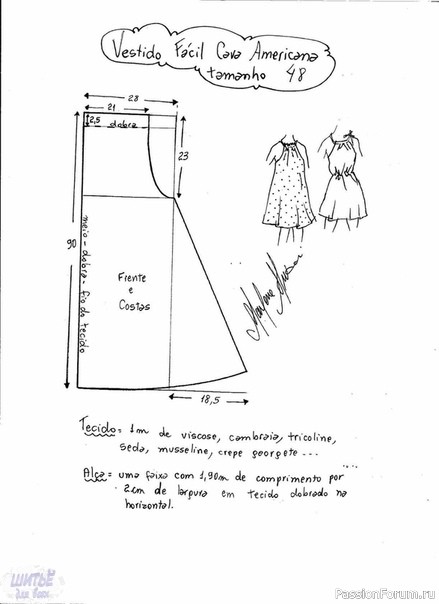 Vestido Fácil Cava Americana
tamanho 48
28
21
2,5 dobra
23
90
meio - dobra - fio do tecido
Frente
e
Costas
18,5
Tecido = 1m de viscose, cambraia, tricoline,
seda, musseline, crepe georgete ...
Alça = uma faixa com 1,90m de comprimento por
2cm de largura em tecido dobrado na
horizontal.
ШИТЬЁ
для всех
PassionForum.ru